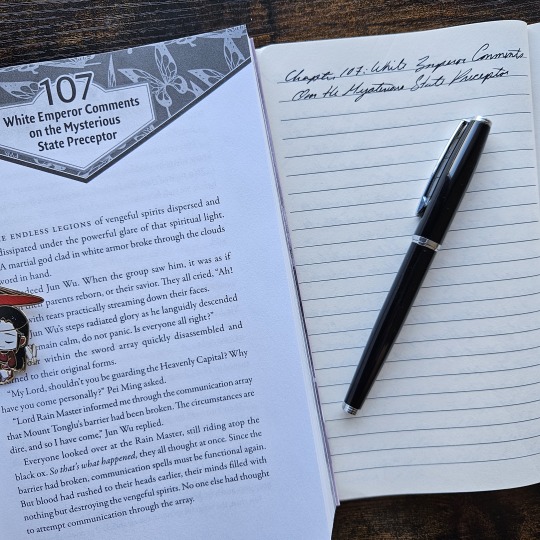 107
White Emperor Comments
on the Mysterious
State Preceptor
ENDLESS LEGIONS of vengeful spirits dispersed and
dissipated under the powerful glare of that spiritual light.
A martial god clad in white armor broke through the clouds
word in hand.
deed Jun Wu. When the group saw him, it was as if
parents reborn, or their savior. They all cried, "Ah!
with tears practically streaming down their faces.
Jun Wu's steps radiated glory as he languidly descended
main calm, do not panic. Is everyone all right?"
our within the sword array quickly disassembled and
ned to their original forms.
"My Lord, shouldn't you be guarding the Heavenly Capital? Why
have you come personally?" Pei Ming asked.
"Lord Rain Master informed me through the communication array
that Mount Tonglu's barrier had been broken. The circumstances are
dire, and so I have come," Jun Wu replied.
Everyone looked over at the Rain Master, still riding atop the
black ox. So that's what happened, they all thought at once. Since the
barrier had broken, communication spells must be functional again.
But blood had rushed to their heads earlier, their minds filled with
nothing but destroying the vengeful spirits. No one else had thought
to attempt communication through the array.
Chapter 107: White Emperor Comments
On the Mysterious State Preceptor